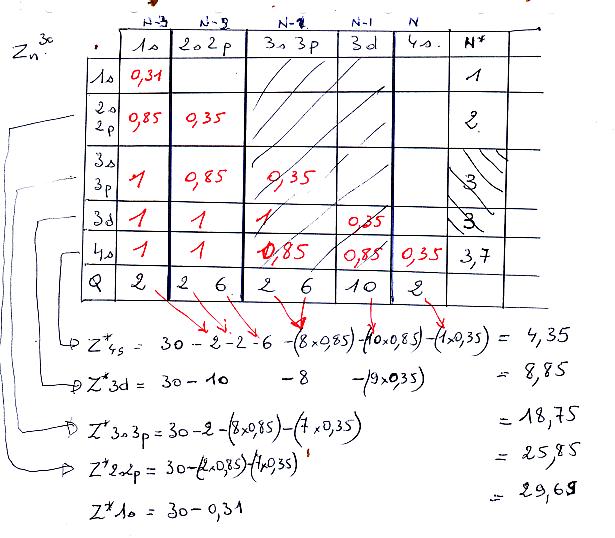 N-3 N-2 N-1 N-1 N
Zn 30 1s 2s2p 3s 3p 3d 4s. N*
1s 0,31 1
2s 2p 0,85 0,35 2
3s 3p 1 0,85 0,35 3
3d 1 1 1 0,35 3
4s 1 1 0,85 0,85 0,35 3,7
Q 2 2 6 2 6 10 2
Z*4s = 30 - 2 - 2 - 6 - (8x0,85) - (10x0,85) - (1x0,35) = 4,35
Z*3d = 30 - 10 - 8 - (9x0,35) = 8,85
Z*3s3p = 30 - 2 - (8x0,85) - (7x0,35) = 18,75
Z*2s2p = 30 - (2x0,85) - (7x0,35) = 25,85
Z*1s = 30 - 0,31 = 29,69